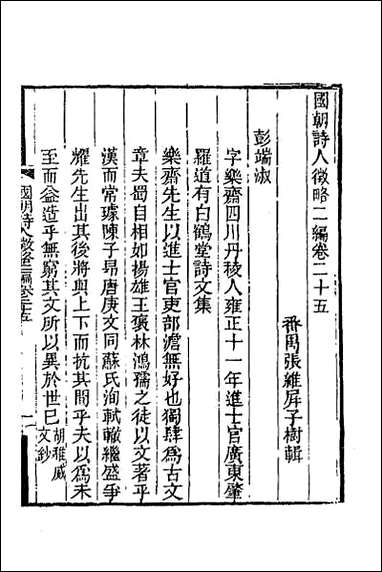 國朝詩人徵略二編卷二十五
番禺張維屏子樹輯
彭端淑
字樂齋四川丹稜人雍正十一年進士官廣東肇
羅道有白鶴堂詩文集
樂齋先生以進士官吏部澹無好也獨肆爲古文
章夫蜀自相如揚雄王褒林鴻孺之徒以文著乎
漢而常璩陳子昻唐庚文同蘇氏洵軾轍繼盛爭
耀先生出其後將與上下而抗其間乎夫以爲未
至而益造乎無窮其文所以異於世巳
胡稚威
文鈔
國朝詩人徵畧二編卷二十五
一